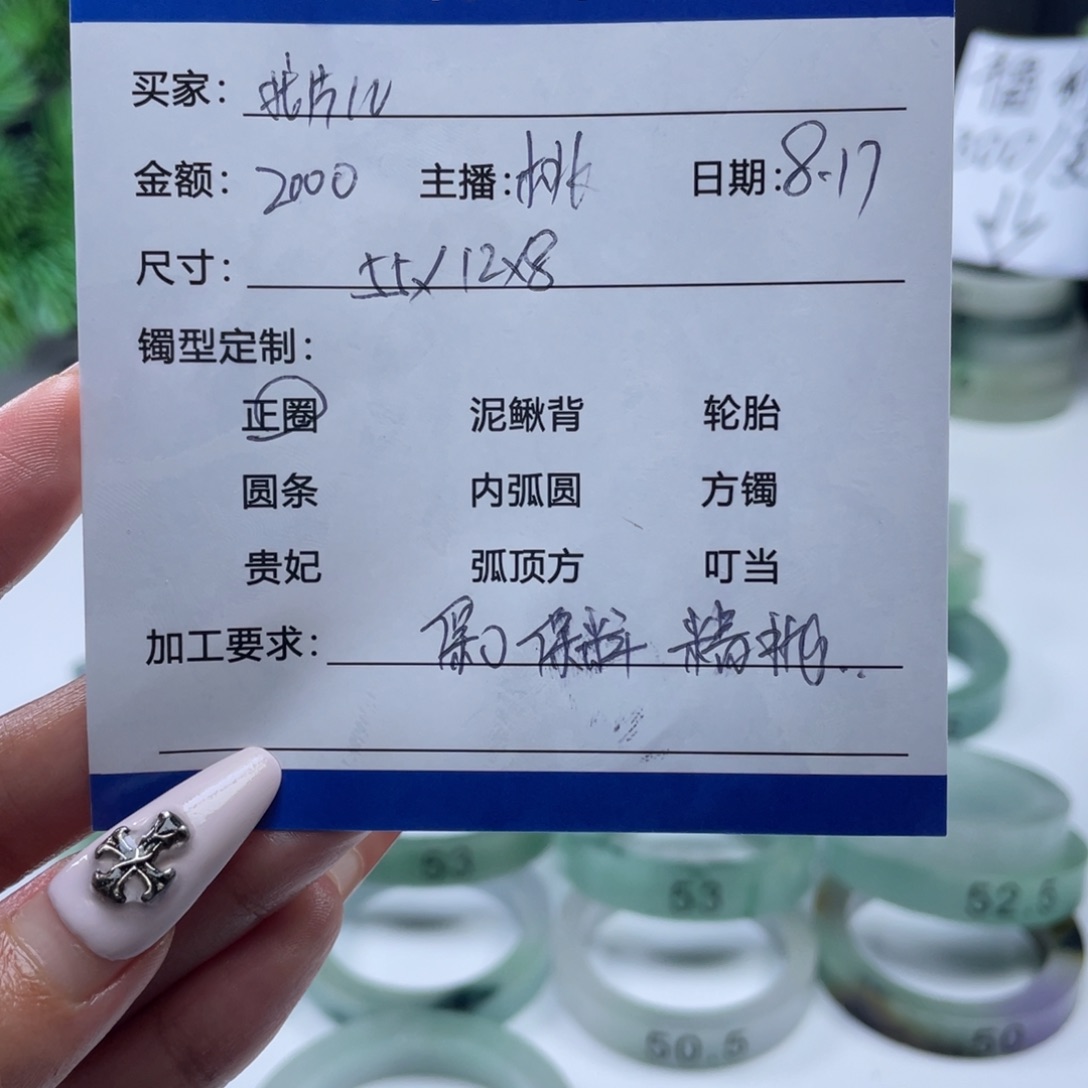 买家：
金额：2000 主播：桃 日期：8.17
尺寸：55x12x8
镯型定制：
正圈 泥鳅背 轮胎
圆条 内弧圆 方镯
贵妃 弧顶方 叮当
加工要求：保口 保料 精挑..
53
53
52.5
50.5
50